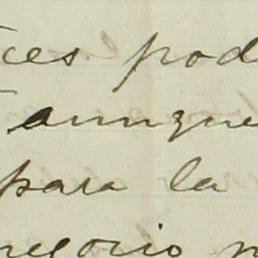 ces pod
aunque
para la
regorio